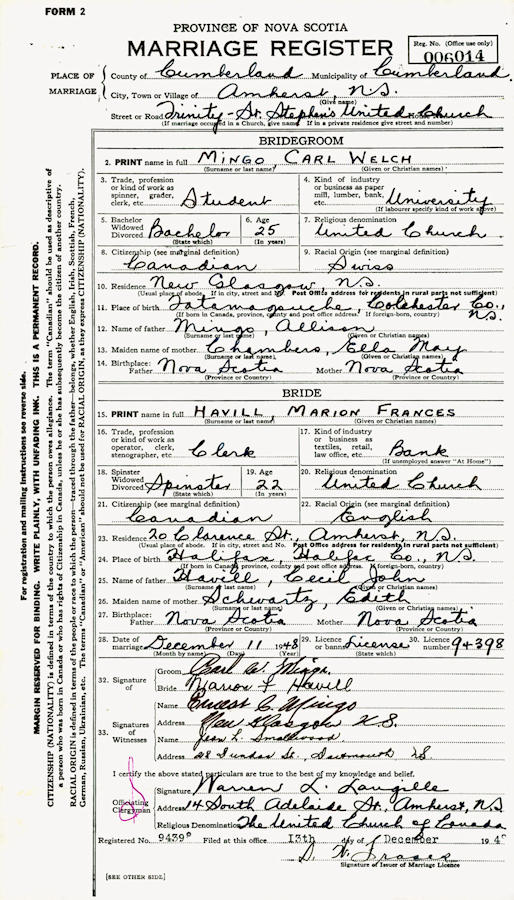 FORM 2
PROVINCE OF NOVA SCOTIA
MARRIAGE REGISTER
Reg. No. (Office use only)
006014
PLACE OF MARRIAGE
County of Cumberland Municipality of Cumberland
City, Town or Village of Amherst, N.S.
(Give name)
Street or Road Trinity-St. Stephen's United Church
(If marriage occurred in a Church, give name. If in a private residence give street and number)
BRIDEGROOM
2. PRINT name in full MINGO, CARL WELCH
(Surname or last name) (Given or Christian names)
3. Trade, profession or kind of work as spinner, grader, clerk, etc. Student
4. Kind of industry or business as paper mill, lumber, bank, etc. University
(If labourer specify kind of work above)
5. Bachelor Widowed Divorced Bachelor
(State which)
6. Age 25
(In years)
7. Religious denomination
United Church
8. Citizenship (see marginal definition)
Canadian
9. Racial Origin (see marginal definition)
Swiss
10. Residence New Glasgow, N.S.
(Usual place of abode. If in city, street and No. Post Office address for residents in rural parts not sufficient)
11. Place of birth Tatamagouche, Colchester Co., N.S.
(If born in Canada, province, county and post office address. If foreign-born, country)
12. Name of father Mingo, Allison
(Surname or last name) (Given or Christian names)
13. Maiden name of mother Chambers, Ella May
(Surname or last name) (Given or Christian names)
14. Birthplace: Father Nova Scotia Mother Nova Scotia
(Province or Country) (Province or Country)
BRIDE
15. PRINT name in full HAVILL, MARION FRANCES
(Surname or last name) (Given or Christian names)
16. Trade, profession or kind of work as operator, clerk, stenographer, etc Clerk
17. Kind of industry or business as textiles, retail, law office, etc. Bank
(If unemployed answer "At Home")
18. Spinster Widowed Divorced Spinster
(State which)
19. Age 22
(In years)
20. Religious denomination
United Church
21. Citizenship (see marginal definition)
Canadian
22. Racial Origin (see marginal definition)
English
23. Residence 20 Clarence St., Amherst, N.S.
(Usual place of abode. If in city, street and No. Post Office address for residents in rural parts not sufficient)
24. Place of birth Halifax, Halifax Co., N.S.
(If born in Canada, province, county and post office address. If foreign-born, country)
25. Name of father Havill, Cecil John
(Surname or last name) (Given or Christian names)
26. Maiden name of mother Schwartz, Edith
(Surname or last name) (Given or Christian names)
27. Birthplace: Father Nova Scotia Mother Nova Scotia
(Province or Country) (Province or Country)
28. Date of marriage December 11 1948
(Month by name) (Day) (Year)
29. Licence or banns License
(State which)
30. Licence number 94398
32. Signature of
Groom Carl W. Mingo
Bride Marion F Havill
33. Signatures of Witnesses
Name Ernest C. Mingo
Address New Glasgow N.S.
Name Jean L. Smallwood
Address 28 Dundas St., Dartmouth NS
I certify the above stated particulars are to the best of my knowledge and belief.
Officiating Clergyman
Signature Warren L. Langille
Address 14 South Adelaide St., Amherst, N.S.
Religious Denomination The United Church of Canada
Registered No. 94398 Filed at this office 13th day of December 194
Signature of Issuer of Marriage Licence
[SEE OTHER SIDE.]
For registration and mailing instructions see reverse side.
MARGIN RESERVED FOR BINDING. WRITE PLAINLY, WITH UNFADING INK. THIS IS A PERMANENT RECORD.
CITIZENSHIP (NATIONALITY) is defined in terms of the country to which the person owes allegiance. The term "Canadian" should be used as descriptive of
a person who was born in Canada or who has rights of Citizenship in Canada, unless he or she has subsequently become the citizen of another country.
RACIAL ORIGIN is defined in terms of the people or race to which the person—traced through the father—belongs, whether English, Irish, Scottish, French,
German, Russian, Ukrainian, etc. The terms "Canadian" or "American" should not be used for RACIAL ORIGIN, as they express CITIZENSHIP (NATIONALITY).